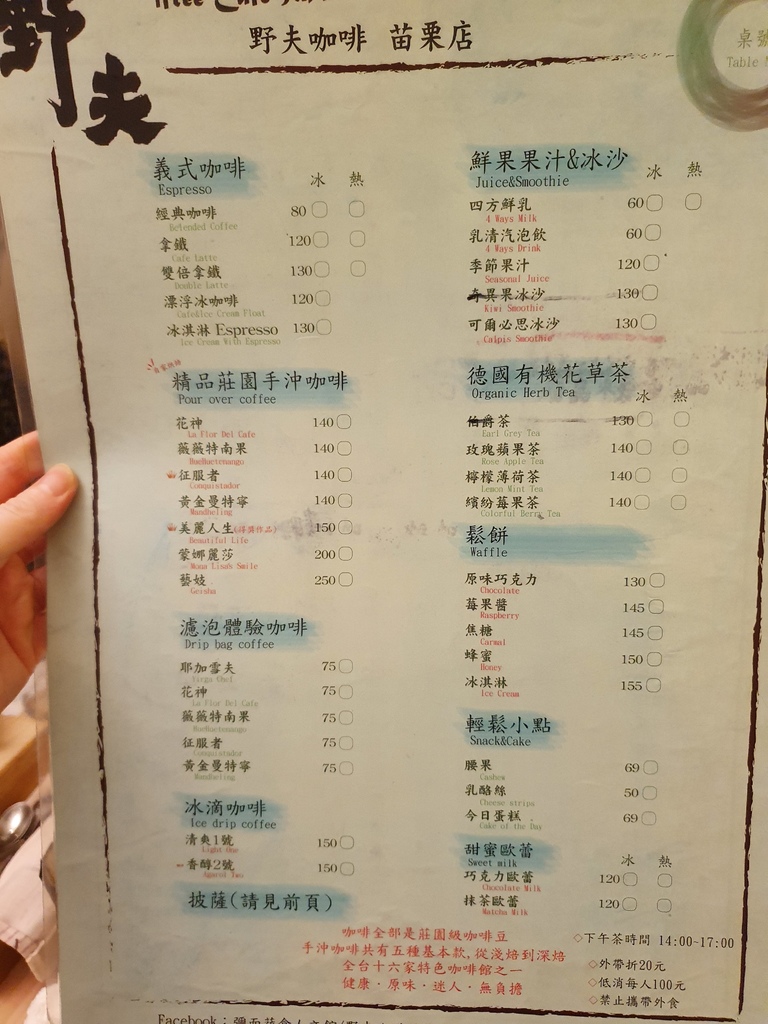 野夫
野夫咖啡 苗栗店
桌號
Table
義式咖啡 冰 熱
Espresso
經典咖啡 80
Belended Coffee
拿鐵 120
Cafe Latte
雙倍拿鐵 130
Double Latte
漂浮冰咖啡 120
Cafe&Ice Cream Float
冰淇淋 Espresso 130
Ice Cream With Espresso
精品莊園手沖咖啡
Pour over coffee
花神 140
La Flor Del Cafe
薇薇特南果 140
HueHuetenango
征服者 140
Conquistador
黃金曼特寧 140
Mandheling
美麗人生(得獎作品) 150
Beautiful Life
蒙娜麗莎 200
Mona Lisa's Smile
藝妓 250
Geisha
濾泡體驗咖啡
Drip bag coffee
耶加雪夫 75
花神 75
La Flor Del Cafe
薇薇特南果 75
HueHuetenango
征服者 75
Conquistador
黃金曼特寧 75
Mandheling
冰滴咖啡
Ice drip coffee
清爽1號 150
Light One
香醇2號 150
披薩(請見前頁)
鮮果果汁&冰沙 冰 熱
Juice&Smoothie
四方鮮乳 60
4 Ways Milk
乳清汽泡飲 60
4 Ways Drink
季節果汁 120
Seasonal Juice
奇異果冰沙 130
Kiwi Smoothie
可爾必思冰沙 130
Calpis Smoothie
德國有機花草茶 冰 熱
Organic Herb Tea
伯爵茶 130
Earl Grey Tea
玫瑰蘋果茶 140
Rose Apple Tea
檸檬薄荷茶 140
Lemon Mint Tea
繽紛莓果茶 140
Colorful Berry Tea
鬆餅
Waffle
原味巧克力 130
Chocolate
莓果醬 145
Raspberry
焦糖 145
Carmal
蜂蜜 150
Honey
冰淇淋 155
Ice Cream
輕鬆小點
Snack&Cake
腰果 69
Cashew
乳酪絲 50
Cheese strips
今日蛋糕 69
Cake of the Day
甜蜜歐蕾 冰 熱
Sweet milk
巧克力歐蕾 120
Chocolate Milk
抹茶歐蕾 120
Matcha Milk
咖啡全部是莊園級咖啡豆
手沖咖啡共有五種基本款,從淺焙到深焙
全台十六家特色咖啡館之一
健康‧原味‧迷人‧無負擔
◇下午茶時間 14:00~17:00
◇外帶折20元
◇低消每人100元
◇禁止攜帶外食